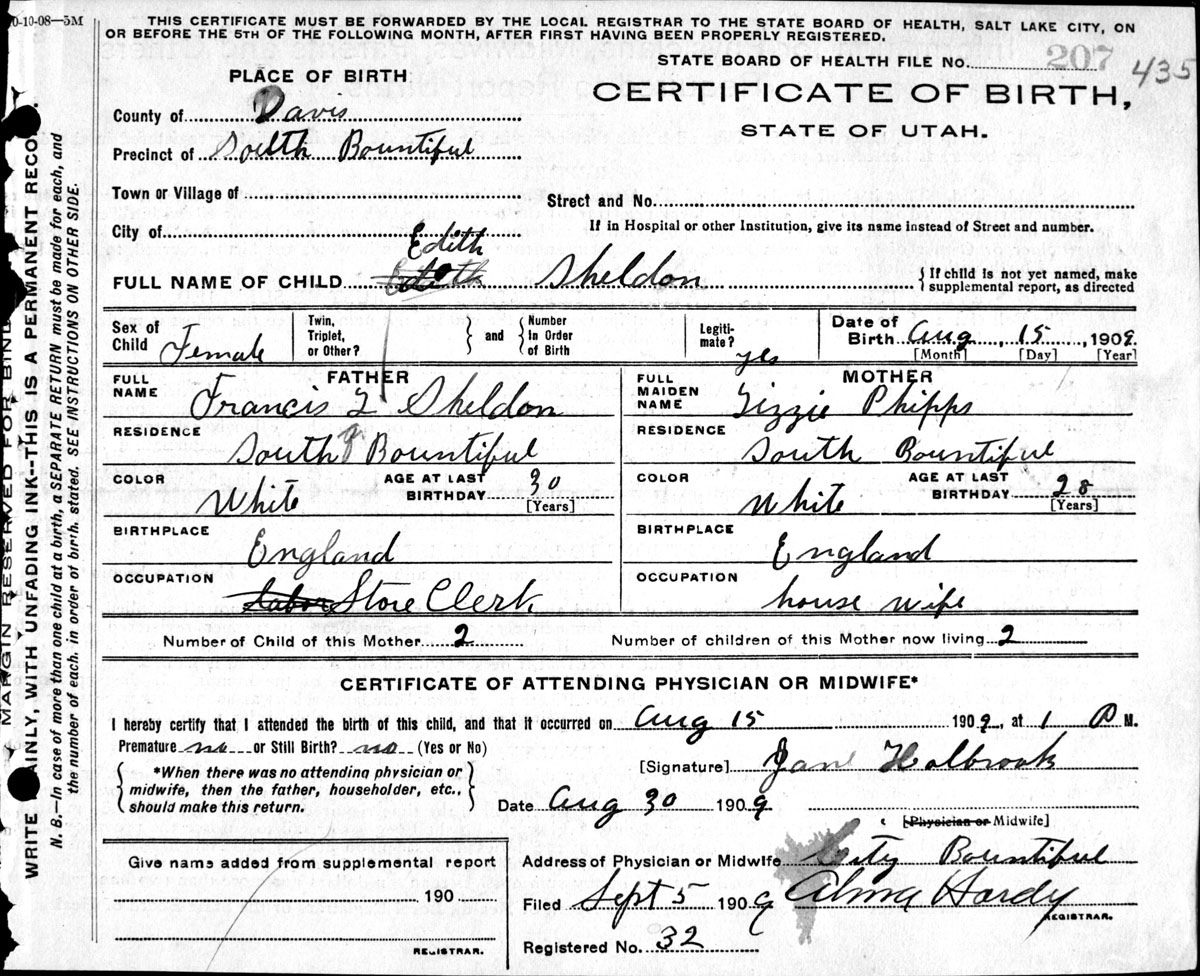 0-10-08—5M
THIS CERTIFICATE MUST BE FORWARDED BY THE LOCAL REGISTRAR TO THE STATE BOARD OF HEALTH, SALT LAKE CITY, ON
OR BEFORE THE 5TH OF THE FOLLOWING MONTH, AFTER FIRST HAVING BEEN PROPERLY REGISTERED.
STATE BOARD OF HEALTH FILE No. 207 435
PLACE OF BIRTH
CERTIFICATE OF BIRTH,
STATE OF UTAH.
County of Davis
Precinct of South Bountiful
Town or Village of
Street and No.
City of
If in Hospital or other Institution, give its name instead of Street and number.
Edith
FULL NAME OF CHILD Sheldon
{ If child is not yet named, make
supplemental report, as directed
Sex of Child Female
Twin, Triplet, or Other? } and { Number In Order of Birth
Legiti-mate? yes
Date of Birth Aug 15, 1909.
[Month] [Day] [Year]
FATHER
FULL NAME Francis T Sheldon
RESIDENCE South Bountiful
COLOR White
AGE AT LAST BIRTHDAY 30
[Years]
BIRTHPLACE England
OCCUPATION Labor Store Clerk
MOTHER
FULL MAIDEN NAME Lizzie Phipps
RESIDENCE South Bountiful
COLOR White
AGE AT LAST BIRTHDAY 28
[Years]
BIRTHPLACE England
OCCUPATION house wife
Number of Child of this Mother 2
Number of children of this Mother now living 2
CERTIFICATE OF ATTENDING PHYSICIAN OR MIDWIFE*
I hereby certify that I attended the birth of this child, and that it occurred on Aug 15 1909, at 1 P M.
Premature no or Still Birth? no (Yes or No)
{ *When there was no attending physician or
midwife, then the father, householder, etc.,
should make this return. }
[Signature] Jane Holbrook
Date Aug 30 1909
[Physician or Midwife]
Give name added from supplemental report
190
REGISTRAR.
Address of Physician or Midwife City Bountiful
Filed Sept 5 1909 Alma Hardy
REGISTRAR.
Registered No. 32
MARGIN RESERVED FOR BIND
WRITE AINLY, WITH UNFADING INK--THIS IS A PERMANENT RECO
N. B.—In case of more than one child at a birth, a SEPARATE RETURN must be made for each, and
the number of each, in order of birth, stated. SEE INSTRUCTIONS ON OTHER SIDE.